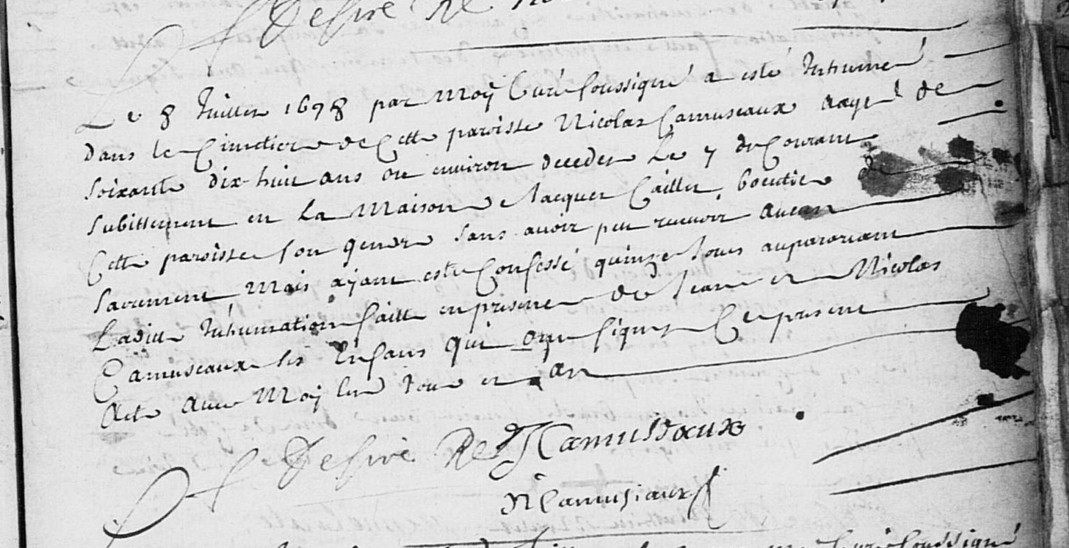 Desiré Re
Le 8 Juillet 1698 par Moÿ Curé soussigné a esté Inhumé
dans le Cimetiere de Cette paroisse Nicolas Camuseaux aagé de
soixante dix-huit ans ou environ decedé Le 7 du Courant
subittement en La Maison Jacques Caillet de
Cette paroisse son gendre sans avoir peu recevoir aucun
sacrement Mais aÿant esté Confessé quinze Jours auparavant
Laditte Inhumation faitte en presence de Jean et Nicolas
Camuseaux ses Enfans qui ont signé Ce present
Acte avec Moÿ les Jour et an
Desiré Re Camuseaux
N Camusiaux
Curé soussigné